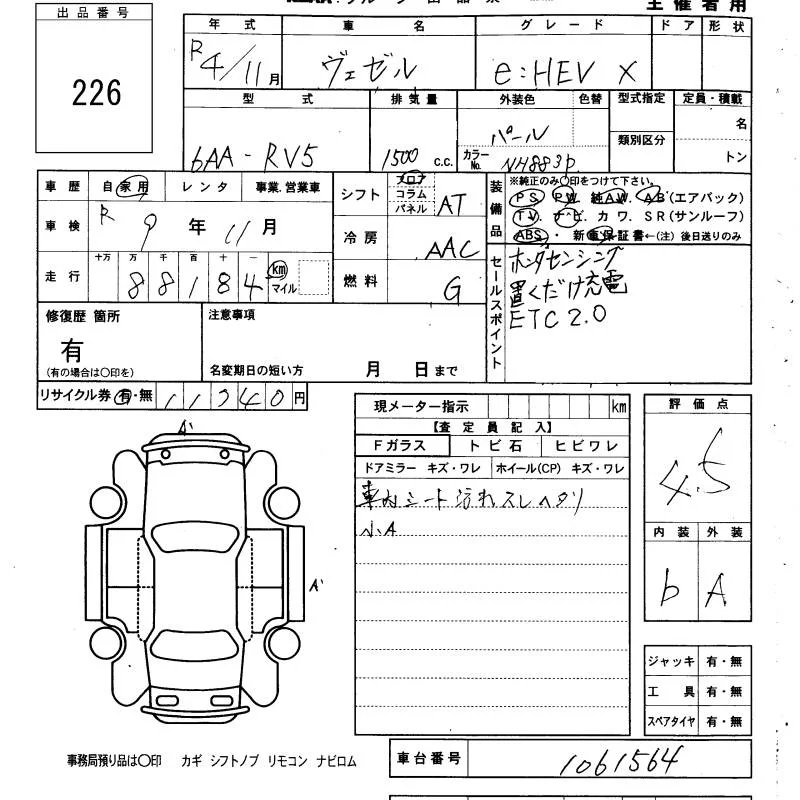 主催者用
出品番号
226
年式 車名 グレード ドア 形状
R4/11月 ヴェゼル e:HEV X
型式 排気量 外装色 色替 型式指定 定員・積載
6AA-RV5 1500 c.c. パール カラーNo. NH883P 類別区分 名 トン
車歴 自家用 レンタ 事業.営業車
車検 R 9年11月
走行 十万 万 千 百 十 一
88184 km マイル
シフト フロア コラム パネル AT
冷房 AAC
燃料 G
装備品 ※純正のみ○印をつけて下さい。
PS. PW. 純AW. AB(エアバック)
TV. ナビ. カワ. SR(サンルーフ)
ABS・ 新車保証書←(注) 後日送りのみ
セールスポイント
ホンダセンシング
置くだけ充電
ETC2.0
修復歴 箇所
有
(有の場合は○印を)
注意事項
名変期日の短い方 月 日まで
リサイクル券 有・無 11340円
現メーター指示 km
【査定員記入】
Fガラス トビ石 ヒビワレ
ドアミラー キズ・ワレ ホイール(CP) キズ・ワレ
車内シート汚れスレヘタリ
小A
評価点
4.5
内装 外装
b A
A'
A'
ジャッキ 有・無
工具 有・無
スペアタイヤ 有・無
事務局預り品は○印 カギ シフトノブ リモコン ナビロム
車台番号 1061564